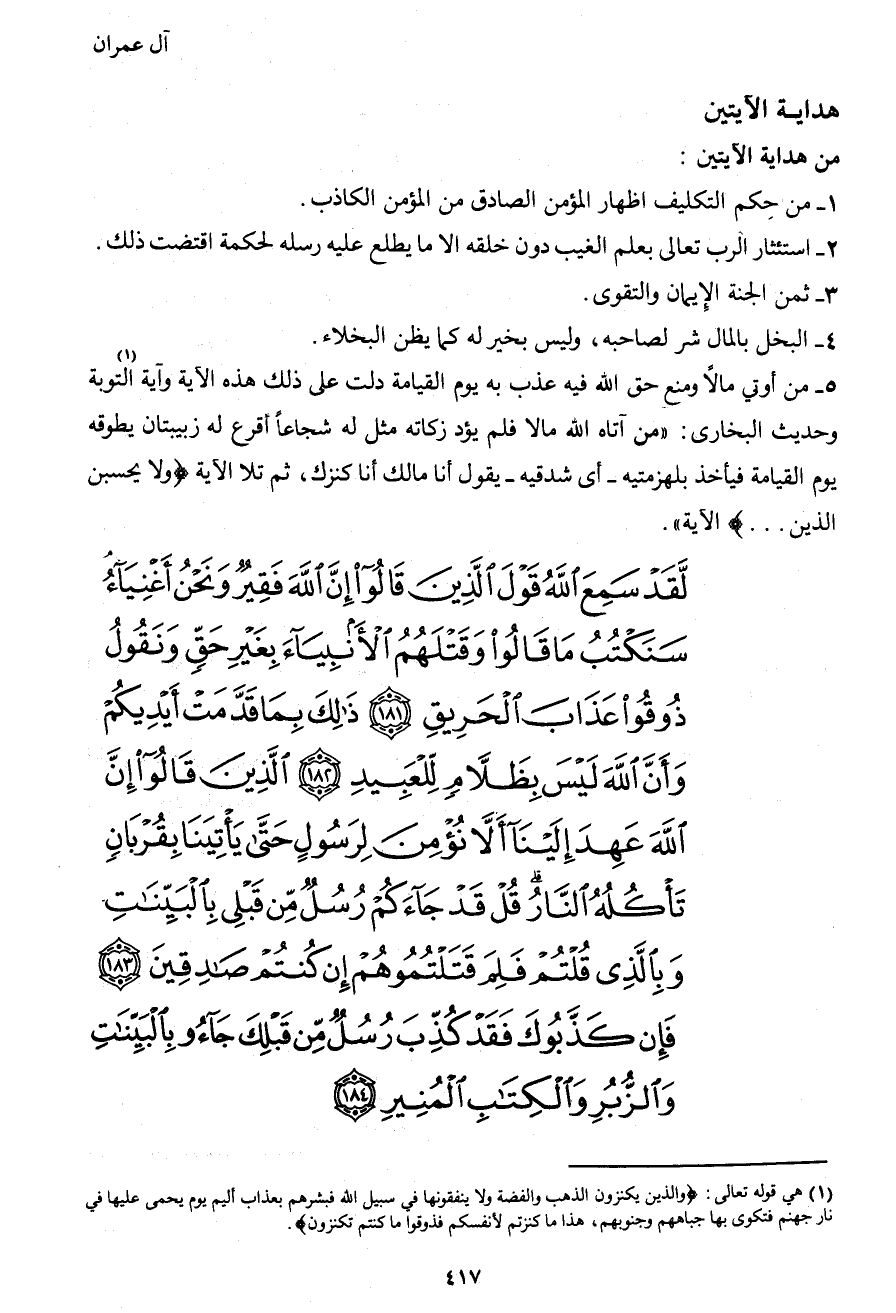 آل عمران
هدايـة الآيتين
من هداية الآيتين :
١ـ من حِكم التكليف اظهار المؤمن الصادق من المؤمن الكاذب .
٢ـ استئثار الرب تعالى بعلم الغيب دون خلقه الا ما يطلع عليه رسله لحكمة اقتضت ذلك .
٣ـ ثمن الجنة الإيمان والتقوى .
٤ـ البخل بالمال شر لصاحبه، وليس بخير له كما يظن البخلاء .
٥ـ من أوتي مالًا ومنع حق الله فيه عذب به يوم القيامة دلت على ذلك هذه الآية وآية التوبة (١)
وحديث البخارى : «من آتاه الله مالا فلم يؤد زكاته مثل له شجاعاً أقرع له زبيبتان يطوقه
يوم القيامة فيأخذ بلهزمتيه ـ أى شدقيه ـ يقول أنا مالك أنا كنزك، ثم تلا الآية ﴿ولا يحسبن
الذين . . . ﴾ الآية» .
لَّقَدْ سَمِعَ ٱللَّهُ قَوْلَ ٱلَّذِينَ قَالُوٓا۟ إِنَّ ٱللَّهَ فَقِيرٌ وَنَحْنُ أَغْنِيَآءُ
سَنَكْتُبُ مَا قَالُوا۟ وَقَتْلَهُمُ ٱلْأَنۢبِيَآءَ بِغَيْرِ حَقٍّ وَنَقُولُ
ذُوقُوا۟ عَذَابَ ٱلْحَرِيقِ ﴿١٨١﴾ ذَٰلِكَ بِمَا قَدَّمَتْ أَيْدِيكُمْ
وَأَنَّ ٱللَّهَ لَيْسَ بِظَلَّامٍ لِّلْعَبِيدِ ﴿١٨٢﴾ ٱلَّذِينَ قَالُوٓا۟ إِنَّ
ٱللَّهَ عَهِدَ إِلَيْنَآ أَلَّا نُؤْمِنَ لِرَسُولٍ حَتَّىٰ يَأْتِيَنَا بِقُرْبَانٍ
تَأْكُلُهُ ٱلنَّارُ ۗ قُلْ قَدْ جَآءَكُمْ رُسُلٌ مِّن قَبْلِى بِٱلْبَيِّنَٰتِ
وَبِٱلَّذِى قُلْتُمْ فَلِمَ قَتَلْتُمُوهُمْ إِن كُنتُمْ صَادِقِينَ ﴿١٨٣﴾
فَإِن كَذَّبُوكَ فَقَدْ كُذِّبَ رُسُلٌ مِّن قَبْلِكَ جَآءُو بِٱلْبَيِّنَٰتِ
وَٱلزُّبُرِ وَٱلْكِتَٰبِ ٱلْمُنِيرِ ﴿١٨٤﴾
(١) هي قوله تعالى : ﴿والذين يكنزون الذهب والفضة ولا ينفقونها في سبيل الله فبشرهم بعذاب أليم يوم يحمى عليها في
نار جهنم فتكوى بها جباههم وجنوبهم، هذا ما كنزتم لأنفسكم فذوقوا ما كنتم تكنزون﴾ .
٤١٧